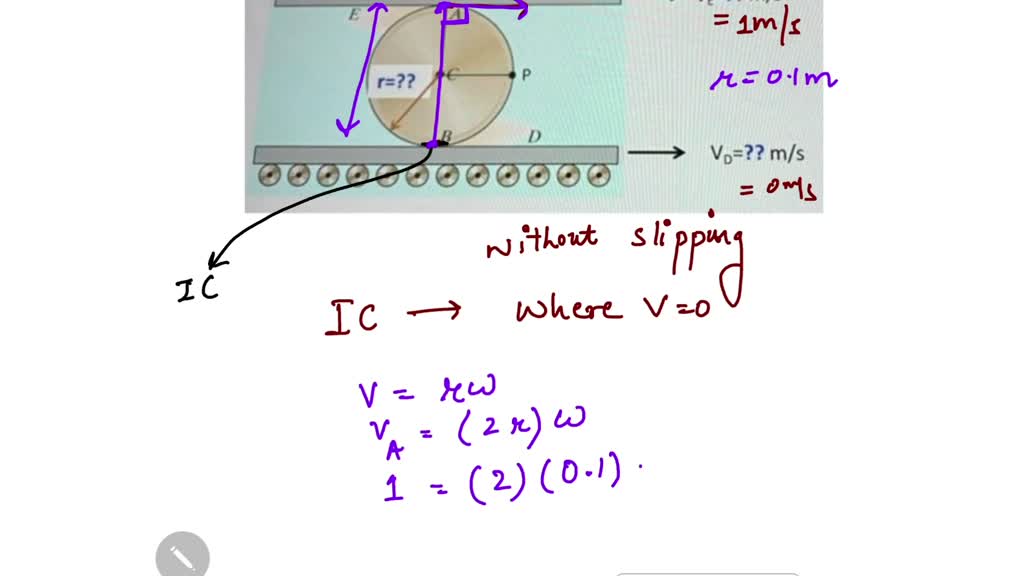 E A
= 1m/s
r=?? C P
r = 0.1m
B D
V_D=?? m/s
= 0m/s
without slipping
IC
IC → where V=0
V = rω
V_A = (2r) ω
1 = (2) (0.1) .